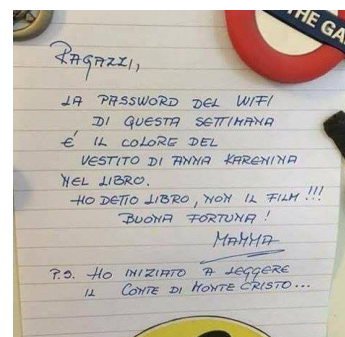 THE GA
RAGAZZI,
LA PASSWORD DEL WIFI
DI QUESTA SETTIMANA
É IL COLORE DEL
VESTITO DI ANNA KARENINA
NEL LIBRO.
HO DETTO LIBRO, NON IL FILM!!!
BUONA FORTUNA!
MAMMA
P.S. HO INIZIATO A LEGGERE
IL CONTE DI MONTE CRISTO...